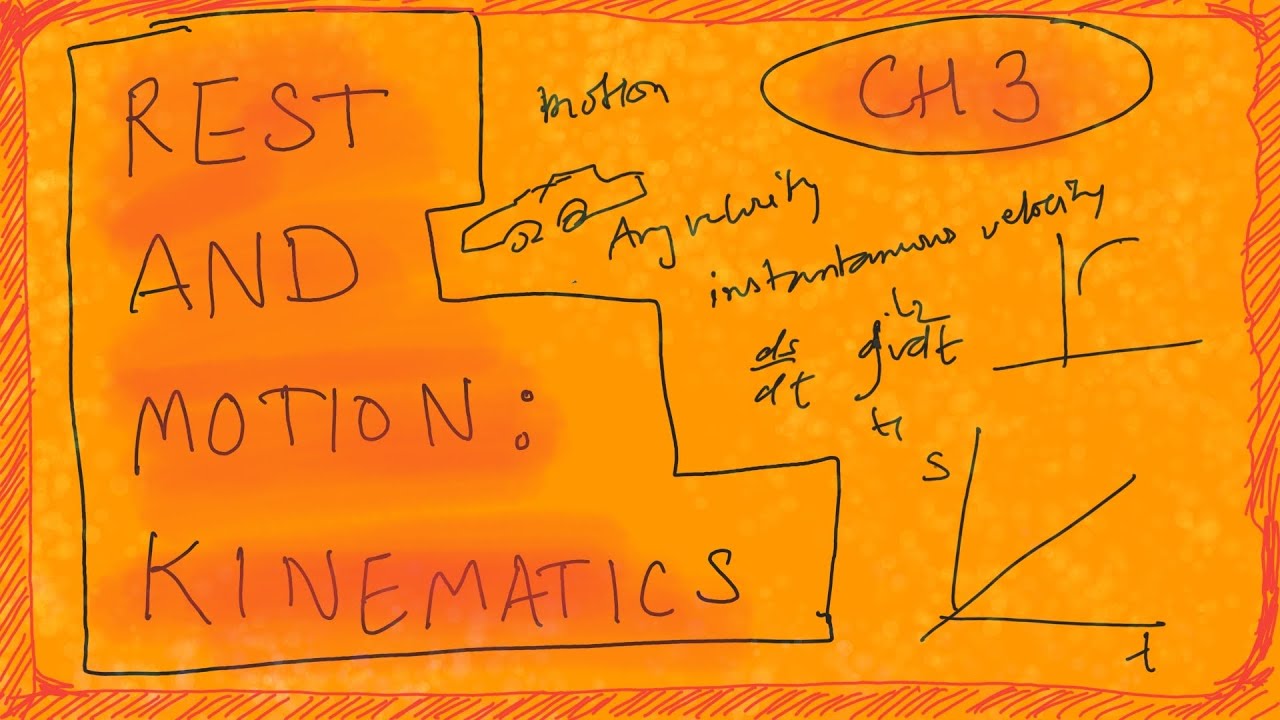 REST
AND
MOTION:
KINEMATICS
motion
CH 3
Avg velocity
instantaneous velocity
ds
dt
∫vdt
t₁
S
t